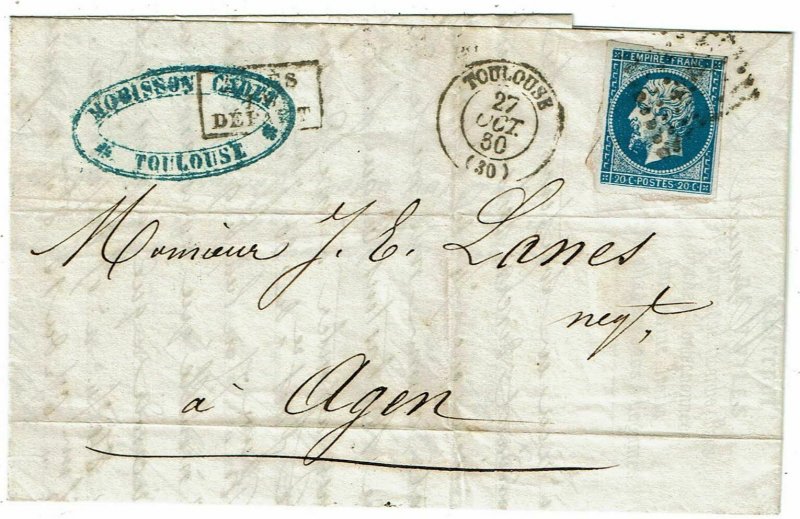 MORISSON CADET
* TOULOUSE *
DÉPART
TOULOUSE
27
OCT.
60
(30)
EMPIRE FRANC
20 C POSTES 20 C
Monsieur J. E. Lanes
negt.
à Agen